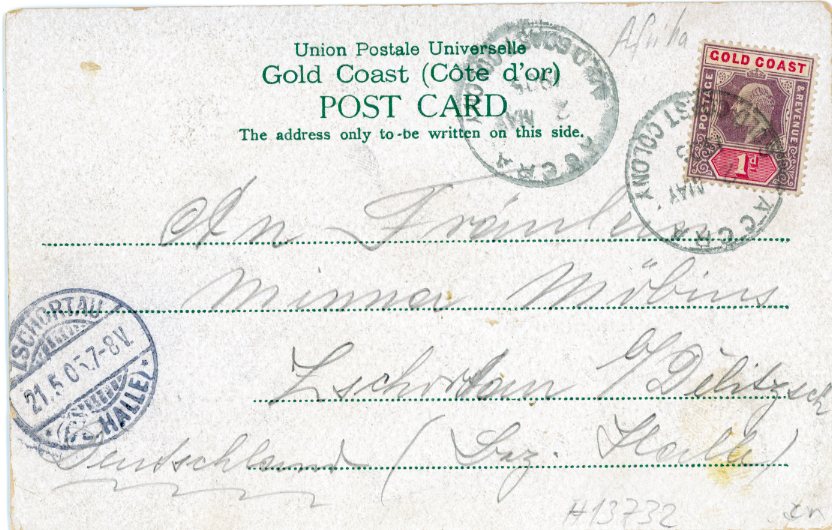 Union Postale Universelle
Gold Coast (Côte d'or)
POST CARD
The address only to-be written on this side.
Afrika
GOLD COAST
POSTAGE & REVENUE
1D
GOLD COAST COLONY
ACCRA
2
MAY
ACCRA
ST COLONY
MAY
An Fräulein
Minna Möbius
Zschortau b/Delitzsch
Deutschland (Bez. Halle)
ZSCHORTAU
21.5.05.7-8V.
(BZ. HALLE)
#13732